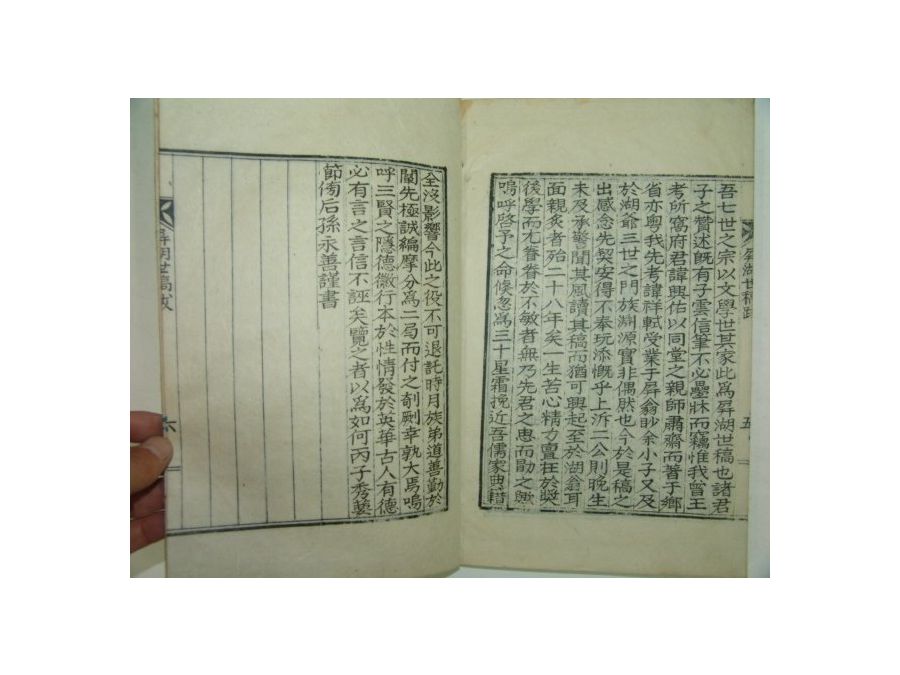 屛湖世稿跋
五
吾七世之宗以文學世其家此爲屛湖世稿也諸君
子之贊述旣有子雲信筆不必疊牀而竊惟我曾王
考所窩府君諱興佑以同堂之親師肅齋而著于鄕
省亦粤我先考諱祥軾受業于屛翁眇余小子又及
於湖爺三世之門族淵源實非偶然也今於是稿之
出感念先契安得不奉玩添慨乎上泝二公則晩生
未及承警聞其風讀其稿而猶可興起至於湖翁耳
面親炙者殆二十八年矣一生苦心精力亶在於奬
後學而尤眷眷於不敏者無乃先君之惠而勖之歟
嗚呼啓予之命倏忽爲三十星霜挽近吾儒家典籍
全沒影響今此之役不可退託時月族弟道善勤於
闡先極誠編摩分爲二局而付之剞劂幸孰大焉嗚
呼三賢之隱德徽行本於性情發於英華古人有德
必有言之言信不誣矣覽之者以爲如何丙子秀葽
節侚后孫永善謹書
屛湖世稿跋
六